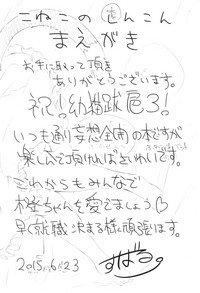 こねこのしんこん
まえがき
お手に取って頂き
ありがとうございます。
祝!幼猫跋扈3!
いつも通り妄想全開の本ですが
楽しんで頂ければさいわいです。
これからもみんなで
ちゃんを愛でましょう♡
早く就職決まる様頑張ります。
2015.6.23
すばる